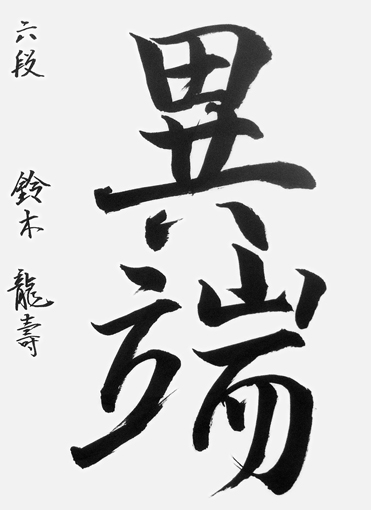 異端
六段 鈴木 龍壽